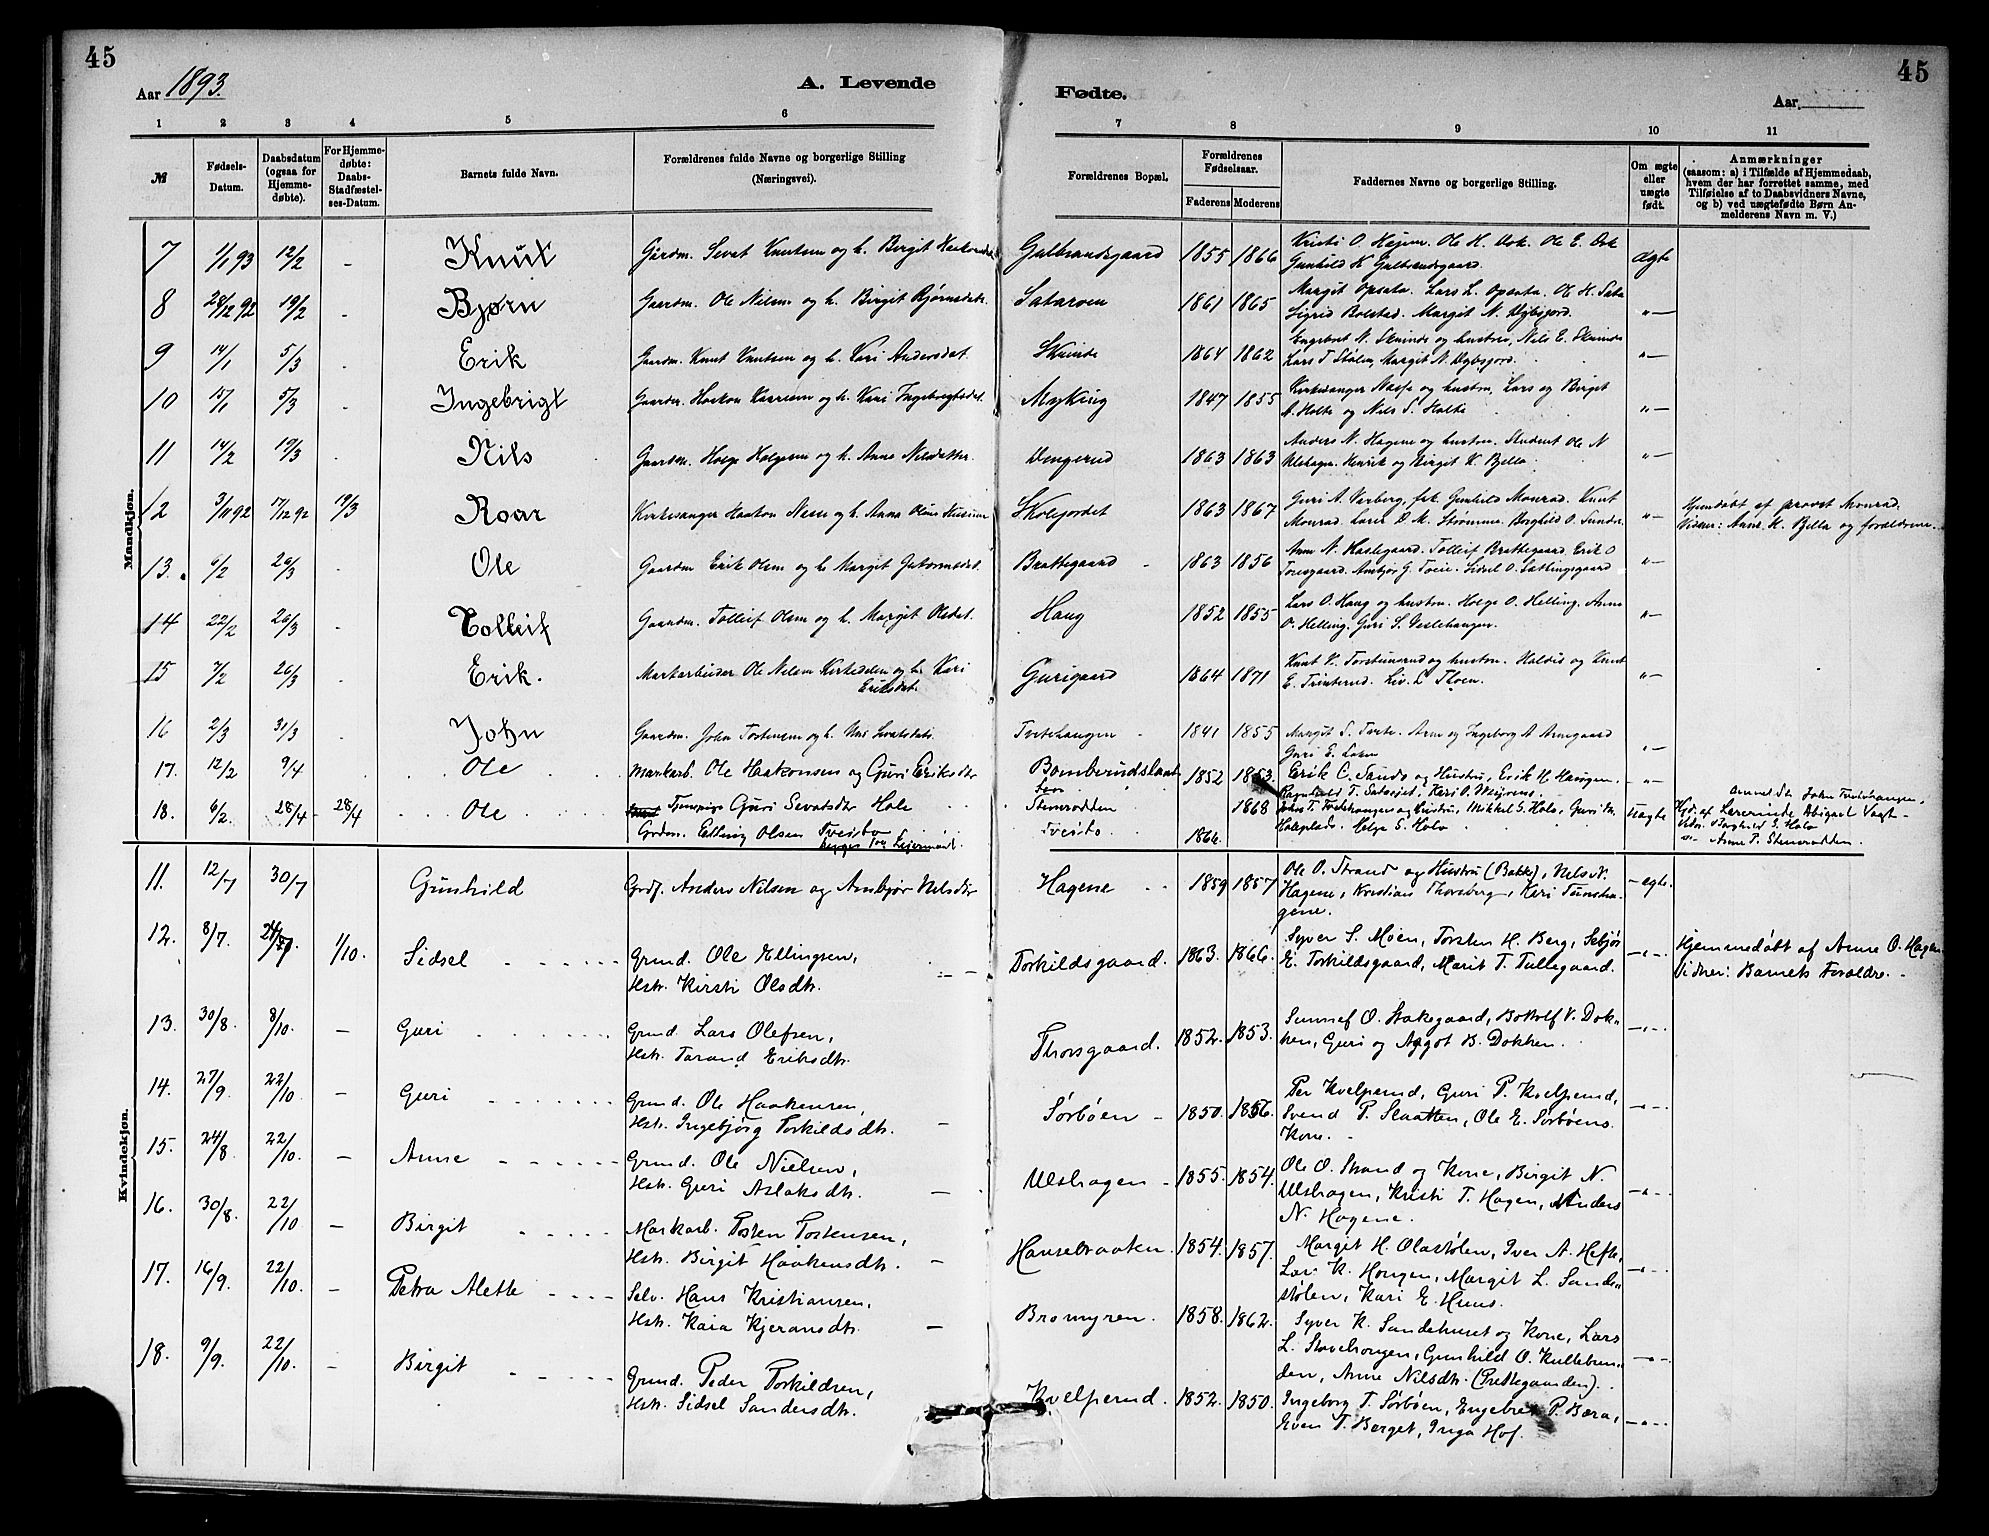 45
45
Aar 1893.
A. Levende
Fødte.
Aar
1 2 3 4 5 6 7 8 9 10 11
№
Fødsels-Datum.
Daabsdatum (ogsaa for Hjemmedøbte).
For Hjemmedøbte: Daabs-Stadfæstelses-Datum.
Barnets fulde Navn.
Forældrenes fulde Navne og borgerlige Stilling (Næringsvei).
Forældrenes Bopæl.
Forældrenes Fødselsaar.
Faderens Moderens
Faddernes Navne og borgerlige Stilling.
Om ægte eller uægte født.
Anmærkninger
(saasom: a) i Tilfælde af Hjemmedaab, hvem der har forrettet samme, med Tilføielse af to Daabsvidners Navne, og b) ved uægtefødte Børn Anmelderens Navn m. V.)
Mandkjøn.
7 1/1 93 12/2 - Knut Gaardm. Sevat Knutsen og h. Birgit Gulbrandsgaard 1855 1866 Kristi O. Ole H. Dok. Ole E. Dok
Gunhild K Gulbrandsgaard. ægte
8 28/12 92 19/2 - Bjørn Gaardm. Ole Nilsen og h. Birgit Bjørnsdtr. Sataroen 1861 1865 Margit Opsata. Lars L. Opsata. Ole H. Sata
Sigrid Bolstad. Margit N. "-
9 14/1 5/3 . Erik Gaardm. Knut Knutsen og h. Kari Andersdat. Skinde 1864 1862 Engebret N. Skinde og hustru, Nils E. Skinde
Lars T Stølen, Margit N. "-
10 15/1 5/3 . Ingebrigt Gaardm. Haakon og h. Kari Ingebrigtsdat. Myking 1847 1855 Kirkesanger Næsse og hustru, Lars og Birgit
A. Holte og Nils S. Holte "-
11 14/2 19/3 . Nils Gaardm. Helge Helgesen og h. Anne Nilsdatter Vengerud 1863 1863 Anders N. Hagene og hustru. Student Ole N
Ulshagen. Henrik og Birgit K. Bjella "-
12 3/11 92 17/12 92 19/3 Roar Kirkesanger Haakon Næss og h. Anna Oline Skolejordet 1863 1867 Guri A. Verberg, frk. Gunhild Monrad. Knut
Monrad. Lærer O. M. Strømme. Borghild O. Sundre "- Hjemdøbt af provst Monrad.
Vidner: Anne K. Bjella og forældrene.
13. 6/2 26/3 . Ole Gaardm Erik Olsen og h Margit Guttormsdat. Brattegaard - 1863 1856 Anne N. Haslegaard. Tolleif Brattegaard. Erik O
Toresgaard. Ambjør G. Toeie. Sidsel O. Satlingsgaard "-
14 22/2 26/3 . Tolleif Gaardm. Tolleif Olsen og h. Margit Olsdat. Haug 1852 1855 Lars O. Haug og hustru. Helge O. Helling. Anne
O. Helling. Guri S. Veslehaugen. "-
15 7/2 26/3 . Erik. Markarbeider Ole Nilsen Kirkedelen og h. Kari
Eriksdat. Gurigaard 1864 1871 Knut K. Torsteinsrud og hustru. Haldis og Knut
E. Trinterud. Liv. L Thoen. "-
16 2/3 31/3 . John Gaardm. John Torstensen og h. Sevatsdat. Tveitehaugen - 1841 1855 Margit S. Tveite. Arne og Ingeborg A Arnegaard
Guri E. "-
17. 12/2 9/4 Ole Markarb. Ole Haakonsen og Guri Eriksdtr 1852 1853. Erik C. Sando og Hustru, Erik H. Haugen.
Ragnhild T. Kari O. "-
18. 6/2. 28/4 - 28/4 Ole Tjenepige Guri Sevatsdtr Hole
Grdm. Elling Olsen Tveito Stenrodden
Tveito 1866. 1868 John T. Tveitehaugen og Hustru, Mikkel S. Holo, Guri M.
Helge S. Holo uægte Anmeldt John Tveitehaugen,
Hjd. af Lærerinde Abigael Vagt -
Vidn. Ragnhild S. Holo
Anne T. Stenrodden.
Kvindekjøn.
11. 12/7 30/7 Gunhild Grdf. Anders Nilsen og Ambjør Nilsdtr Hagene - - 1859 1857 Ole O. Strand og Hustru (Bakke), Nils N.
Hagene, Kristian Thorsberg, Kari Tunshagene. - ægte.
12. 8/7. 24/9. 1/10. Sidsel - - - - Grmd. Ole Ellingsen,
Hstr. Kirsti Olsdtr. Torkildsgaard. 1863. 1866. Syver S. Moen, Torsten H. Berg, Sebjør
E. Torkildsgaard, Marit T. Tullegaard. -"- Hjemmedøbt af Anne O. Hagen
Vidner: Barnets Forældre. -
13. 30/8. 8/10. - Guri - Grmd. Lars Olefsen,
Hstr. Tarand Eriksdtr. Thorsgaard. 1852. 1853. Sunnef O. Stakegaard, Bottolf V. Dokken,
Guri og Aggot B. Dokken. -"-
14. 27/9. 22/10. - Guri - - - - Grmd. Ole Haakensen,
Hstr. Ingebjørg Torkildsdtr. - Sørbøen - 1850. 1856. Per Kvelprud, Guri P. Kvelprud,
Svend P. Slaatten, Ole E. Sørbøens
Kone. - -"-
15. 24/8. 22/10. - Anne - - - - Grmd. Ole Nielsen,
Hstr. Guri Aslaksdtr. - Ulshagen - 1855. 1854. Ole O. Strand og Kone, Birgit N.
Ulshagen, Kristi T. Hagen, Anders
N. Hagene. -"-
16. 30/8. 22/10 - Birgit - - - - Markarb. Tosten Tostensen,
Hstr. Birgit Haakensdtr. - Hansebraaten. 1854. 1857. Margit H. Olastølen, Iver A. Hefte,
Lars K. Hougen, Margit L. Sandestølen,
Kari E. Huus. -"-
17. 16/9. 22/10. - Petra Alette - - - - Selv. Hans Kristiansen,
Hstr. Kaia Kjeransdtr. - Bromyren. 1858. 1862. Syver K. Sandehuset og Kone, Lars
L. Stavehougen, Gunhild O. Kullebrunden,
Anne Nilsdtr. (Prettegaarden). -"-
18. 9/9. 22/10. - Birgit - - - - Grmd. Peder Torkildsen,
Hstr. Sidsel Sandersdtr. Kvelprud. 1852. 1850. Ingeborg T. Sørbøen, Engebret P. Bæra,
Even T. Berget, Inga Hof. -"-